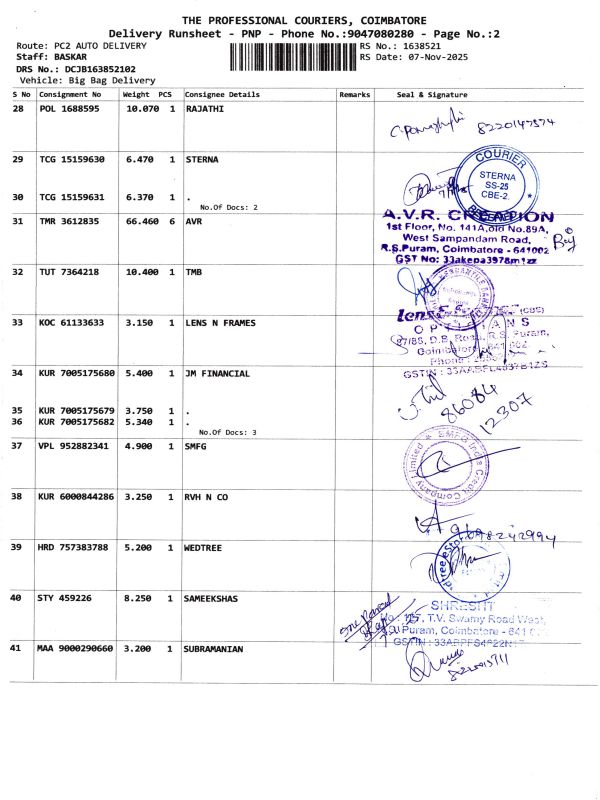 THE PROFESSIONAL COURIERS, COIMBATORE
Delivery Runsheet - PNP - Phone No.:9047080280 - Page No.:2
Route: PC2 AUTO DELIVERY RS No.: 1638521
Staff: BASKAR RS Date: 07-Nov-2025
DRS No.: DCJB163852102
Vehicle: Big Bag Delivery
S No Consignment No Weight PCS Consignee Details Remarks Seal & Signature
28 POL 1688595 10.070 1 RAJATHI
8220147574
29 TCG 15159630 6.470 1 STERNA
COURIER
STERNA
SS-25
CBE-2.
30 TCG 15159631 6.370 1 .
No.Of Docs: 2
31 TMR 3612835 66.460 6 AVR
A.V.R. CREATION
1st Floor, No. 141A,old No.89A,
West Sampandam Road,
R.S.Puram, Coimbatore - 641002
GST No: 33akepa3978m1zz
32 TUT 7364218 10.400 1 TMB
33 KOC 61133633 3.150 1 LENS N FRAMES
(CBS)
R.S. Puram,
Coimbatore
Phone :
34 KUR 7005175680 5.400 1 JM FINANCIAL
86084
12307
35 KUR 7005175679 3.750 1 .
36 KUR 7005175682 5.340 1 .
No.Of Docs: 3
37 VPL 952882341 4.900 1 SMFG
SMFG India Credit Company Limited
38 KUR 6000844286 3.250 1 RVH N CO
39 HRD 757383788 5.200 1 WEDTREE
40 STY 459226 8.250 1 SAMEEKSHAS
SHRESHT
T.V. Swamy Road West,
Puram, Coimbatore - 641
41 MAA 9000290660 3.200 1 SUBRAMANIAN